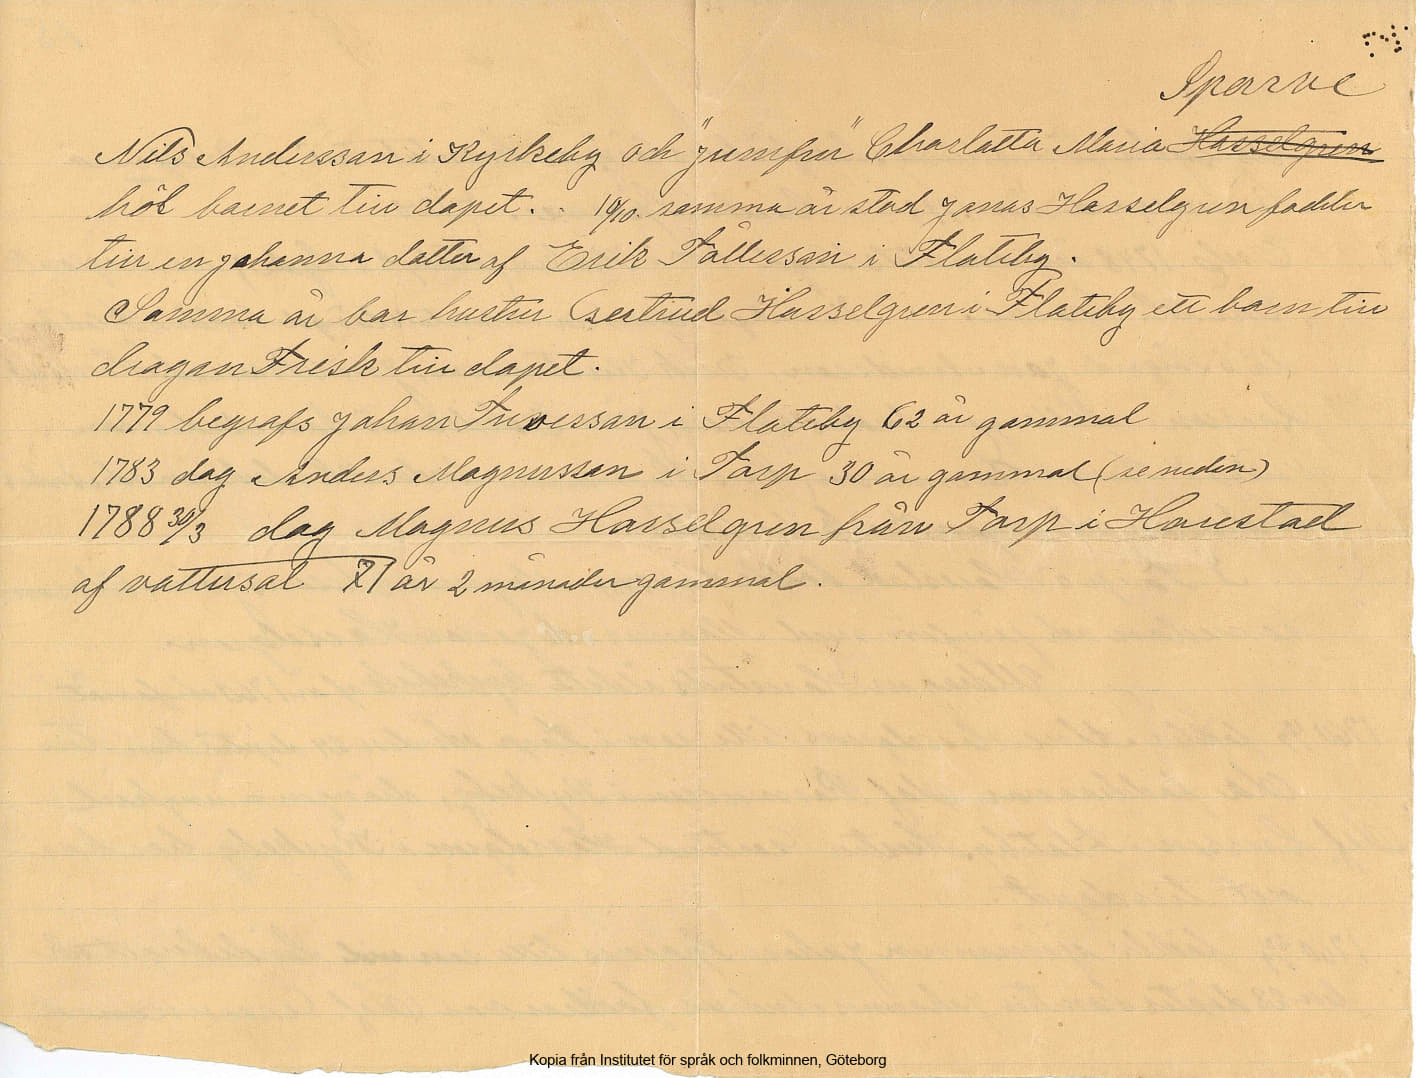 Sparve
Nils Anderssan i Kyrkeby och "jumfru" Charlatta Maria Hasselgren
höl barnet till dapet. 10/10 samma år stod Janas Hasselgren fadder
till en Jahanna dotter af Erik Tållerssan i Flateby.
Samma år bar hustru Gertrud Hasselgren i Flateby ett barn till
dragan Frisk till dapet.
1779 begrafs Jahan Tuvessan i Flateby 62 år gammal
1783 dog Anders Magnussan i Tarp 30 år gammal (se neden)
1788 30/3 dog Magnus Hasselgren från Tarp i Harestad
af vattusat 71 år 2 månader gammal.
Kopia från Institutet för språk och folkminnen, Göteborg